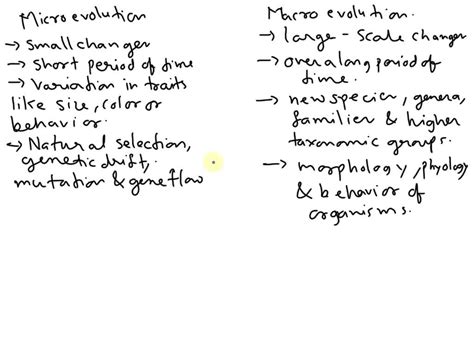 Microevolution
→ Small changes
→ Short period of time
→ Variation in traits
like size, color or
behavior.
→ Natural selection,
genetic drift,
mutation & gene flow
Macro evolution.
→ large - scale changes
→ over a long period of
time.
→ new species, genera,
families & higher
taxonomic groups.
→ morphology, phyology
& behavior of
organisms.